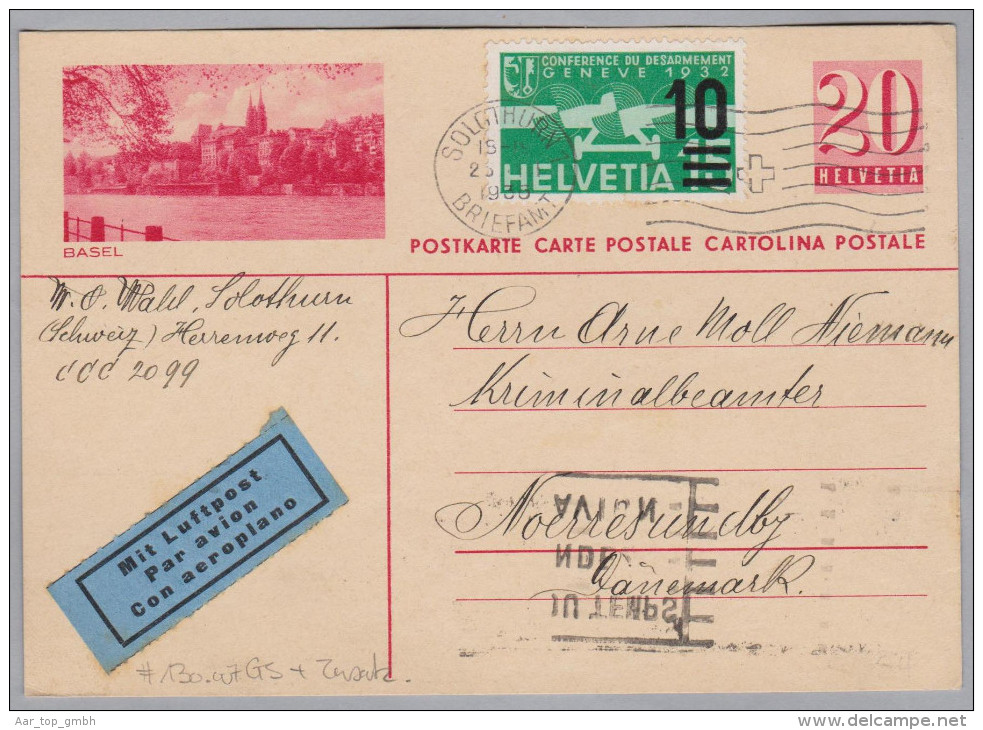 BASEL
CONFERENCE DU DESARMEMENT
GENEVE 1932
10
HELVETIA
SOLOTHURN 1
18-
23
1938
BRIEFAMT
20
HELVETIA
POSTKARTE CARTE POSTALE CARTOLINA POSTALE
W. O. Wahl, Solothurn
(Schweiz) Herrenweg 11.
CCC 2099
Herrn Arne Moll Niemann
Kriminalbeamter
Noerresundby
Dänemark.
AVION
NDE
DU TEMPS
Mit Luftpost
Par avion
Con aeroplano
GS + Zusatz.
Aar_top_gmbh
www.delcampe.net